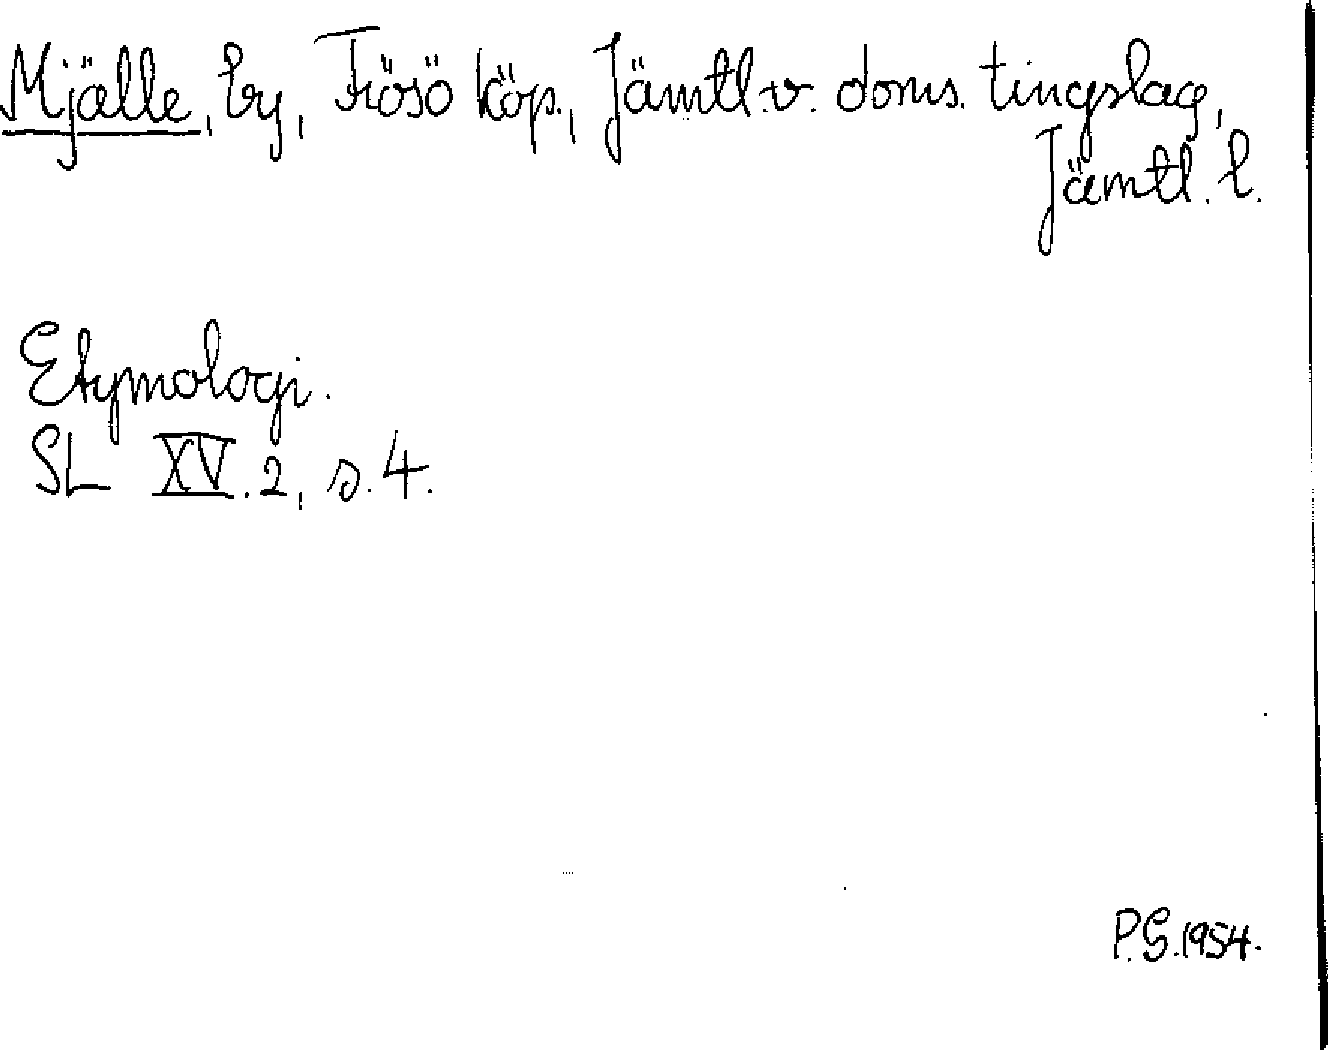 Mjälle, by, Frösö köp., Jämtl.v. doms. tingslag,
Jämtl. l.
Etymologi.
SL XV.2, s.4.
P.G.1954.